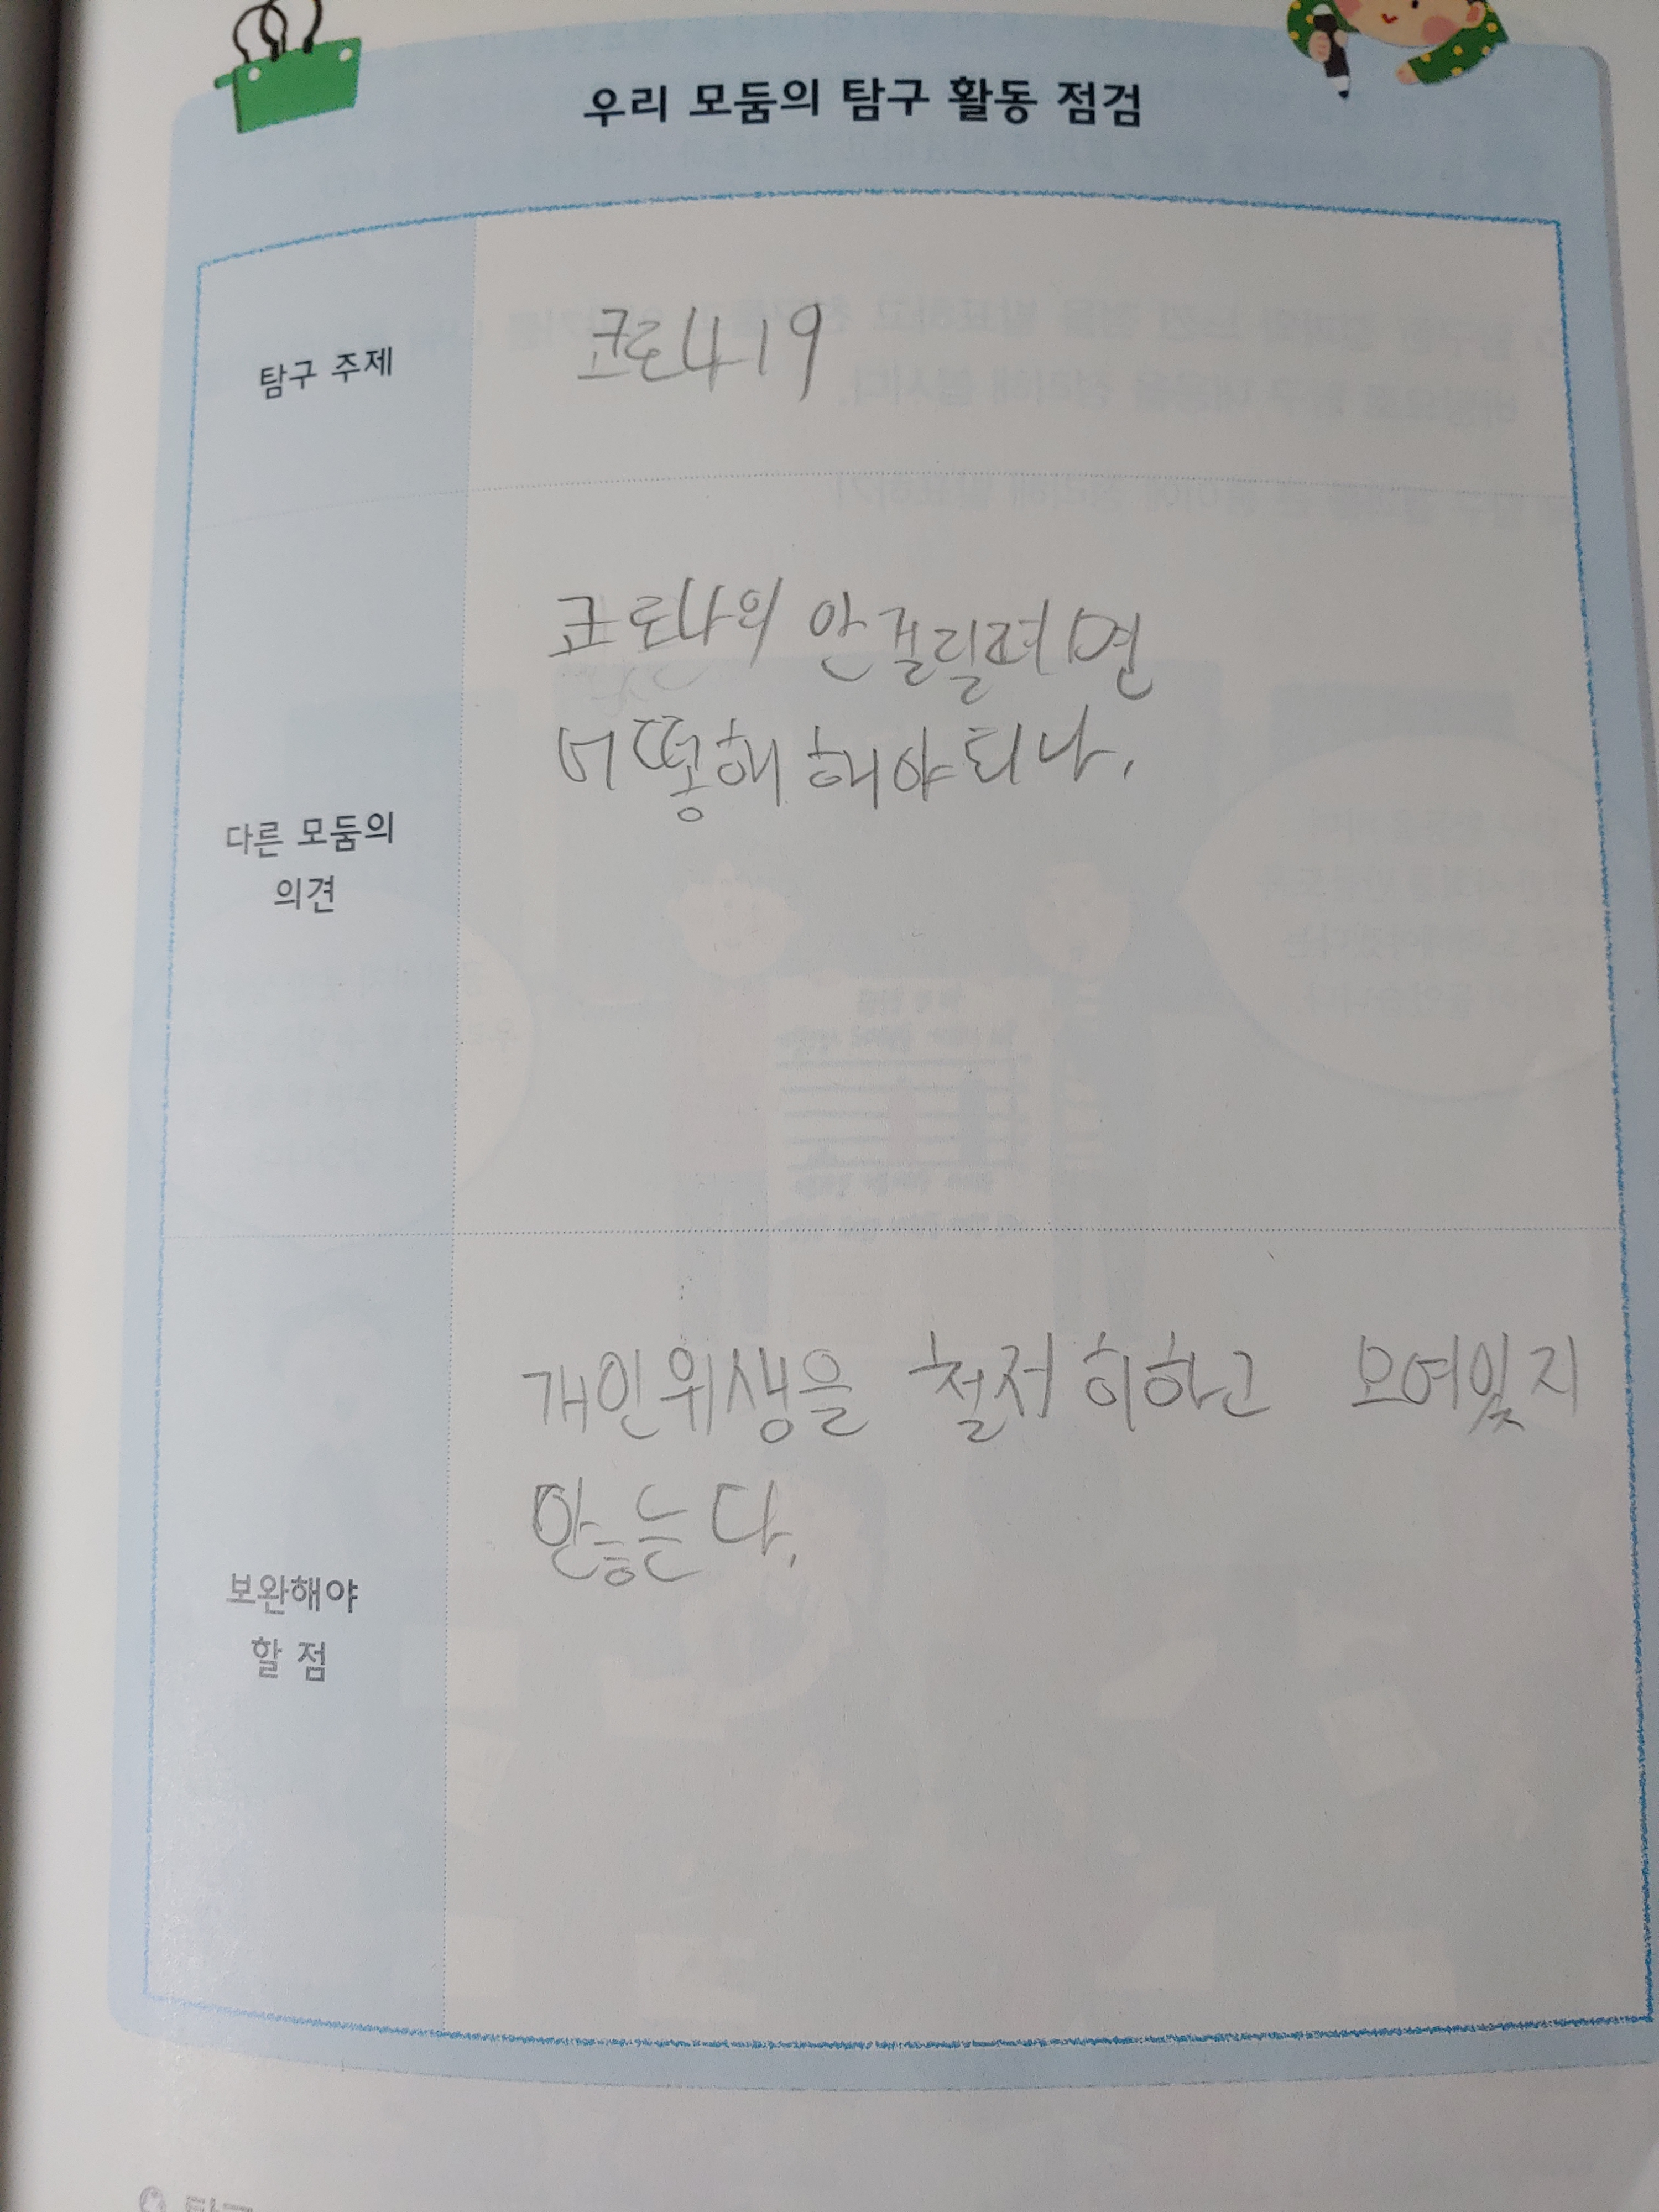 우리 모둠의 탐구 활동 점검
탐구 주제
코로나19
다른 모둠의
의견
코로나의 안걸릴려면
어떻해 해야 되나.
보완해야
할 점
개인위생을 철저히하고 모여있지
않는다.
탐구